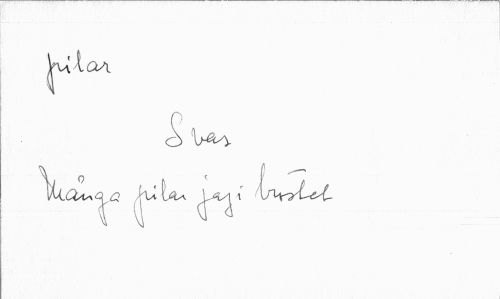 pilar
Svar
Många pilar jag i bröstet